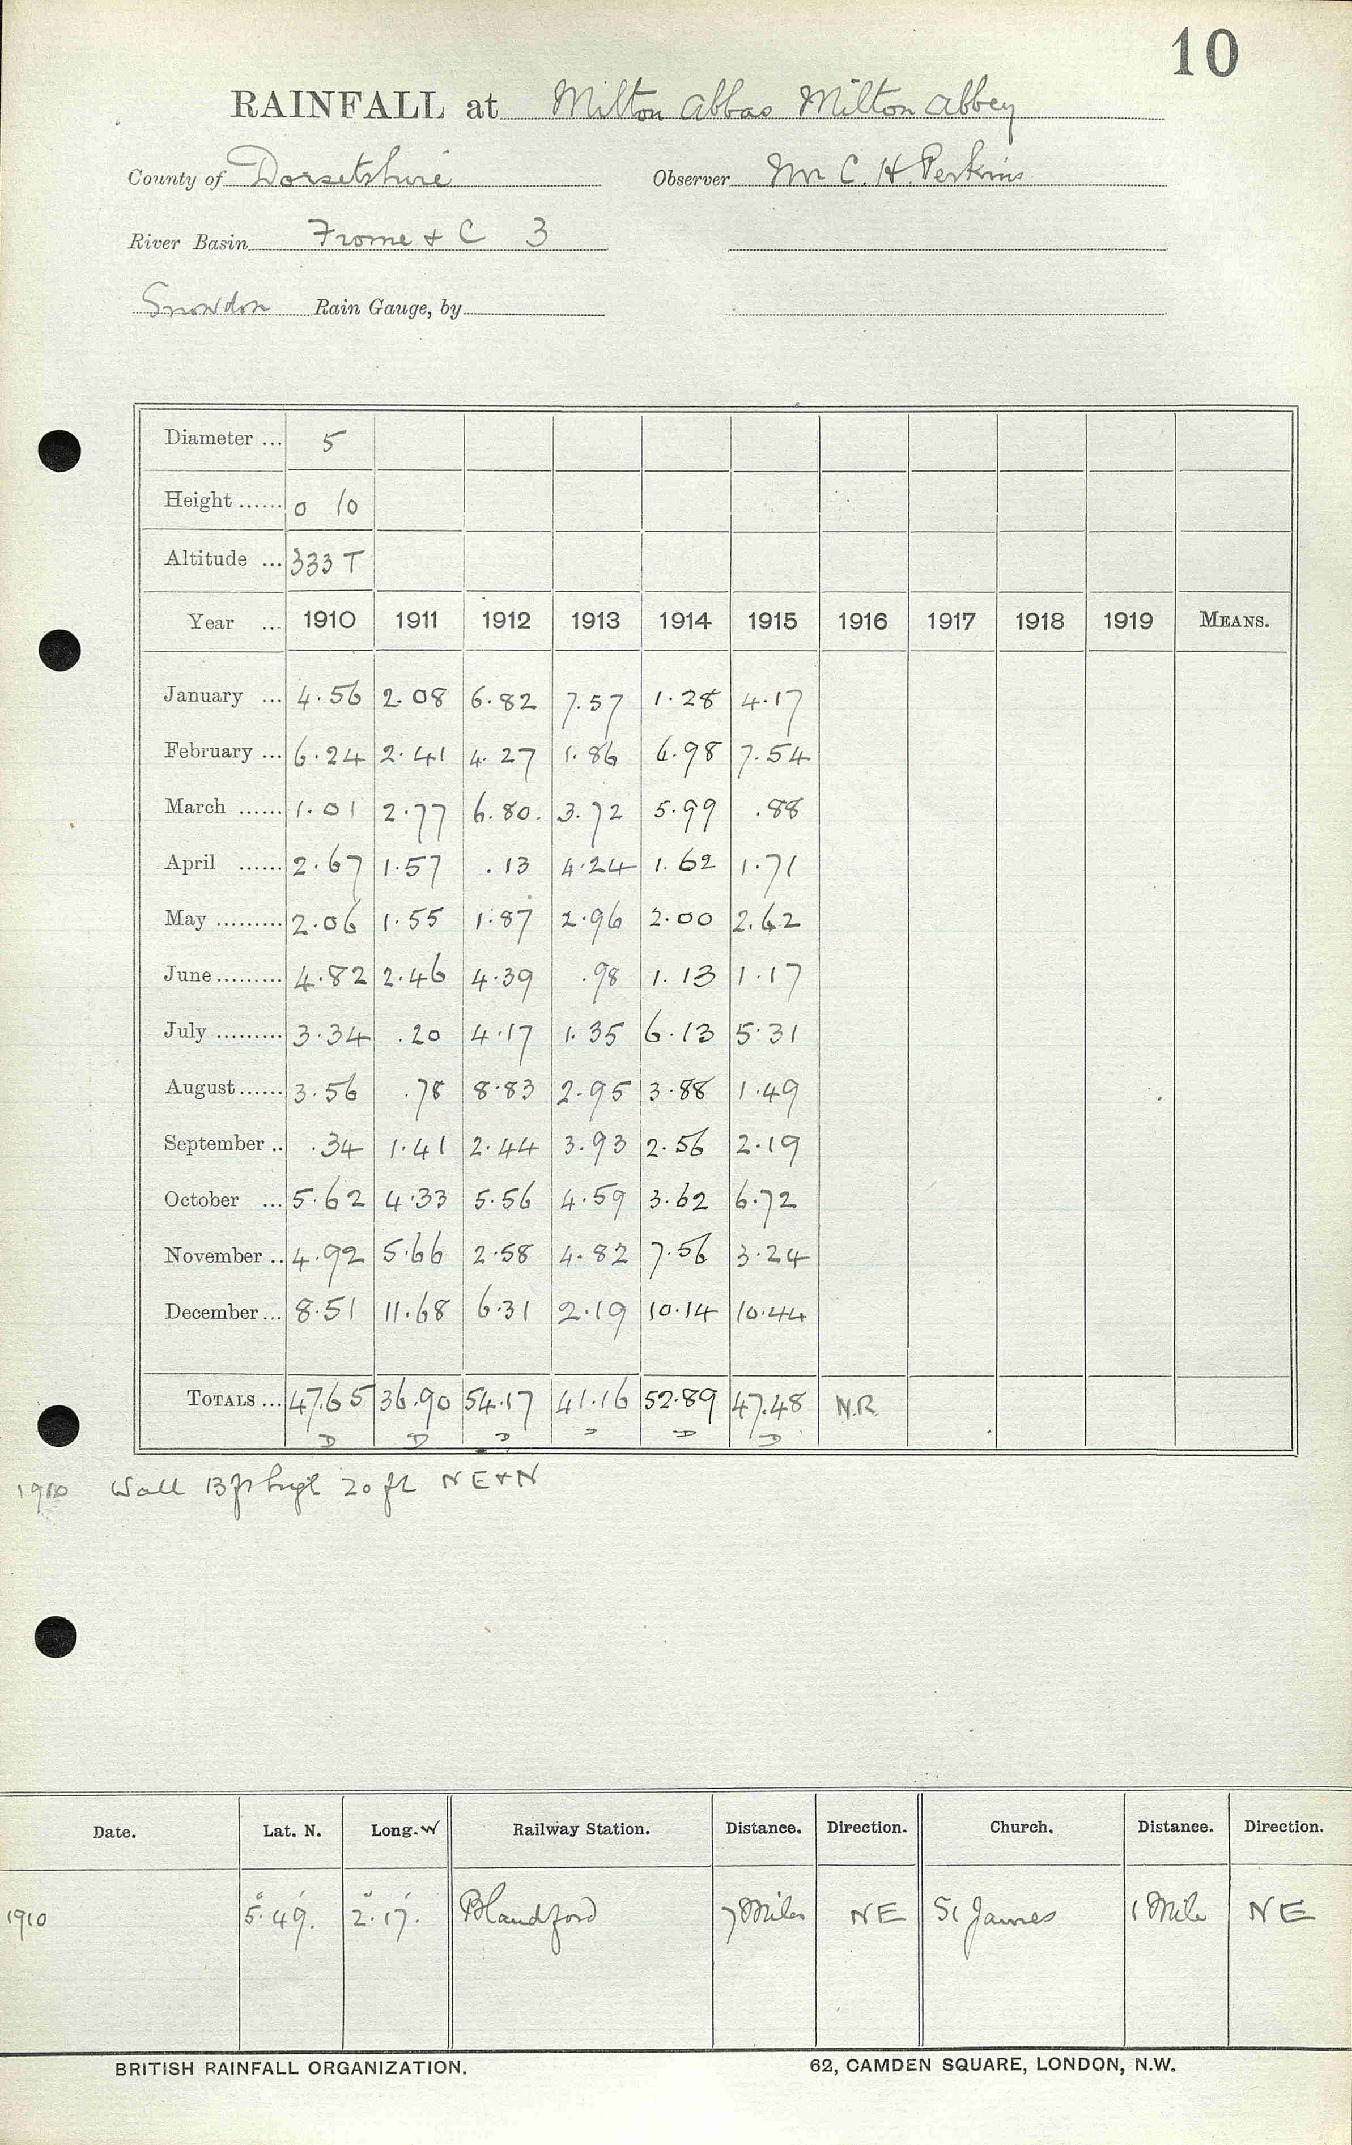 10
RAINFALL at Milton Abbas Milton Abbey
County of Dorsetshire Observer Mr C. H. Perkins
River Basin Frome + C 3
Snowdon Rain Gauge, by
Diameter ... 5
Height ...... 0 10
Altitude ... 333 T
Year ... 1910 1911 1912 1913 1914 1915 1916 1917 1918 1919 MEANS.
January ... 4.56 2.08 6.82 7.57 1.28 4.17
February ... 6.24 2.41 4.27 1.86 6.98 7.54
March ...... 1.01 2.77 6.80. 3.72 5.99 .88
April ...... 2.67 1.57 .13 4.24 1.62 1.71
May ......... 2.06 1.55 1.87 2.96 2.00 2.62
June ......... 4.82 2.46 4.39 .98 1.13 1.17
July ......... 3.34 .20 4.17 1.35 6.13 5.31
August ...... 3.56 .78 8.83 2.95 3.88 1.49
September .. .34 1.41 2.44 3.93 2.56 2.19
October ... 5.62 4.33 5.56 4.59 3.62 6.72
November .. 4.92 5.66 2.58 4.82 7.56 3.24
December ... 8.51 11.68 6.31 2.19 10.14 10.44
TOTALS ... 47.65 36.90 54.17 41.16 52.89 47.48 N.R.
D D D D D D
1910 Wall 13 ft high 20 ft N E + N
Date. Lat. N. Long. W Railway Station. Distance. Direction. Church. Distance. Direction.
1910 5°.49'. 2°.17'. Blandford 7 Miles NE St James 1 Mile NE
BRITISH RAINFALL ORGANIZATION. 62, CAMDEN SQUARE, LONDON, N.W.